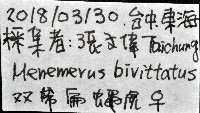 2018/03/30.台中東海
採集者:張文偉 Taichung
Menemerus bivittatus
双帶扁蠅虎♀